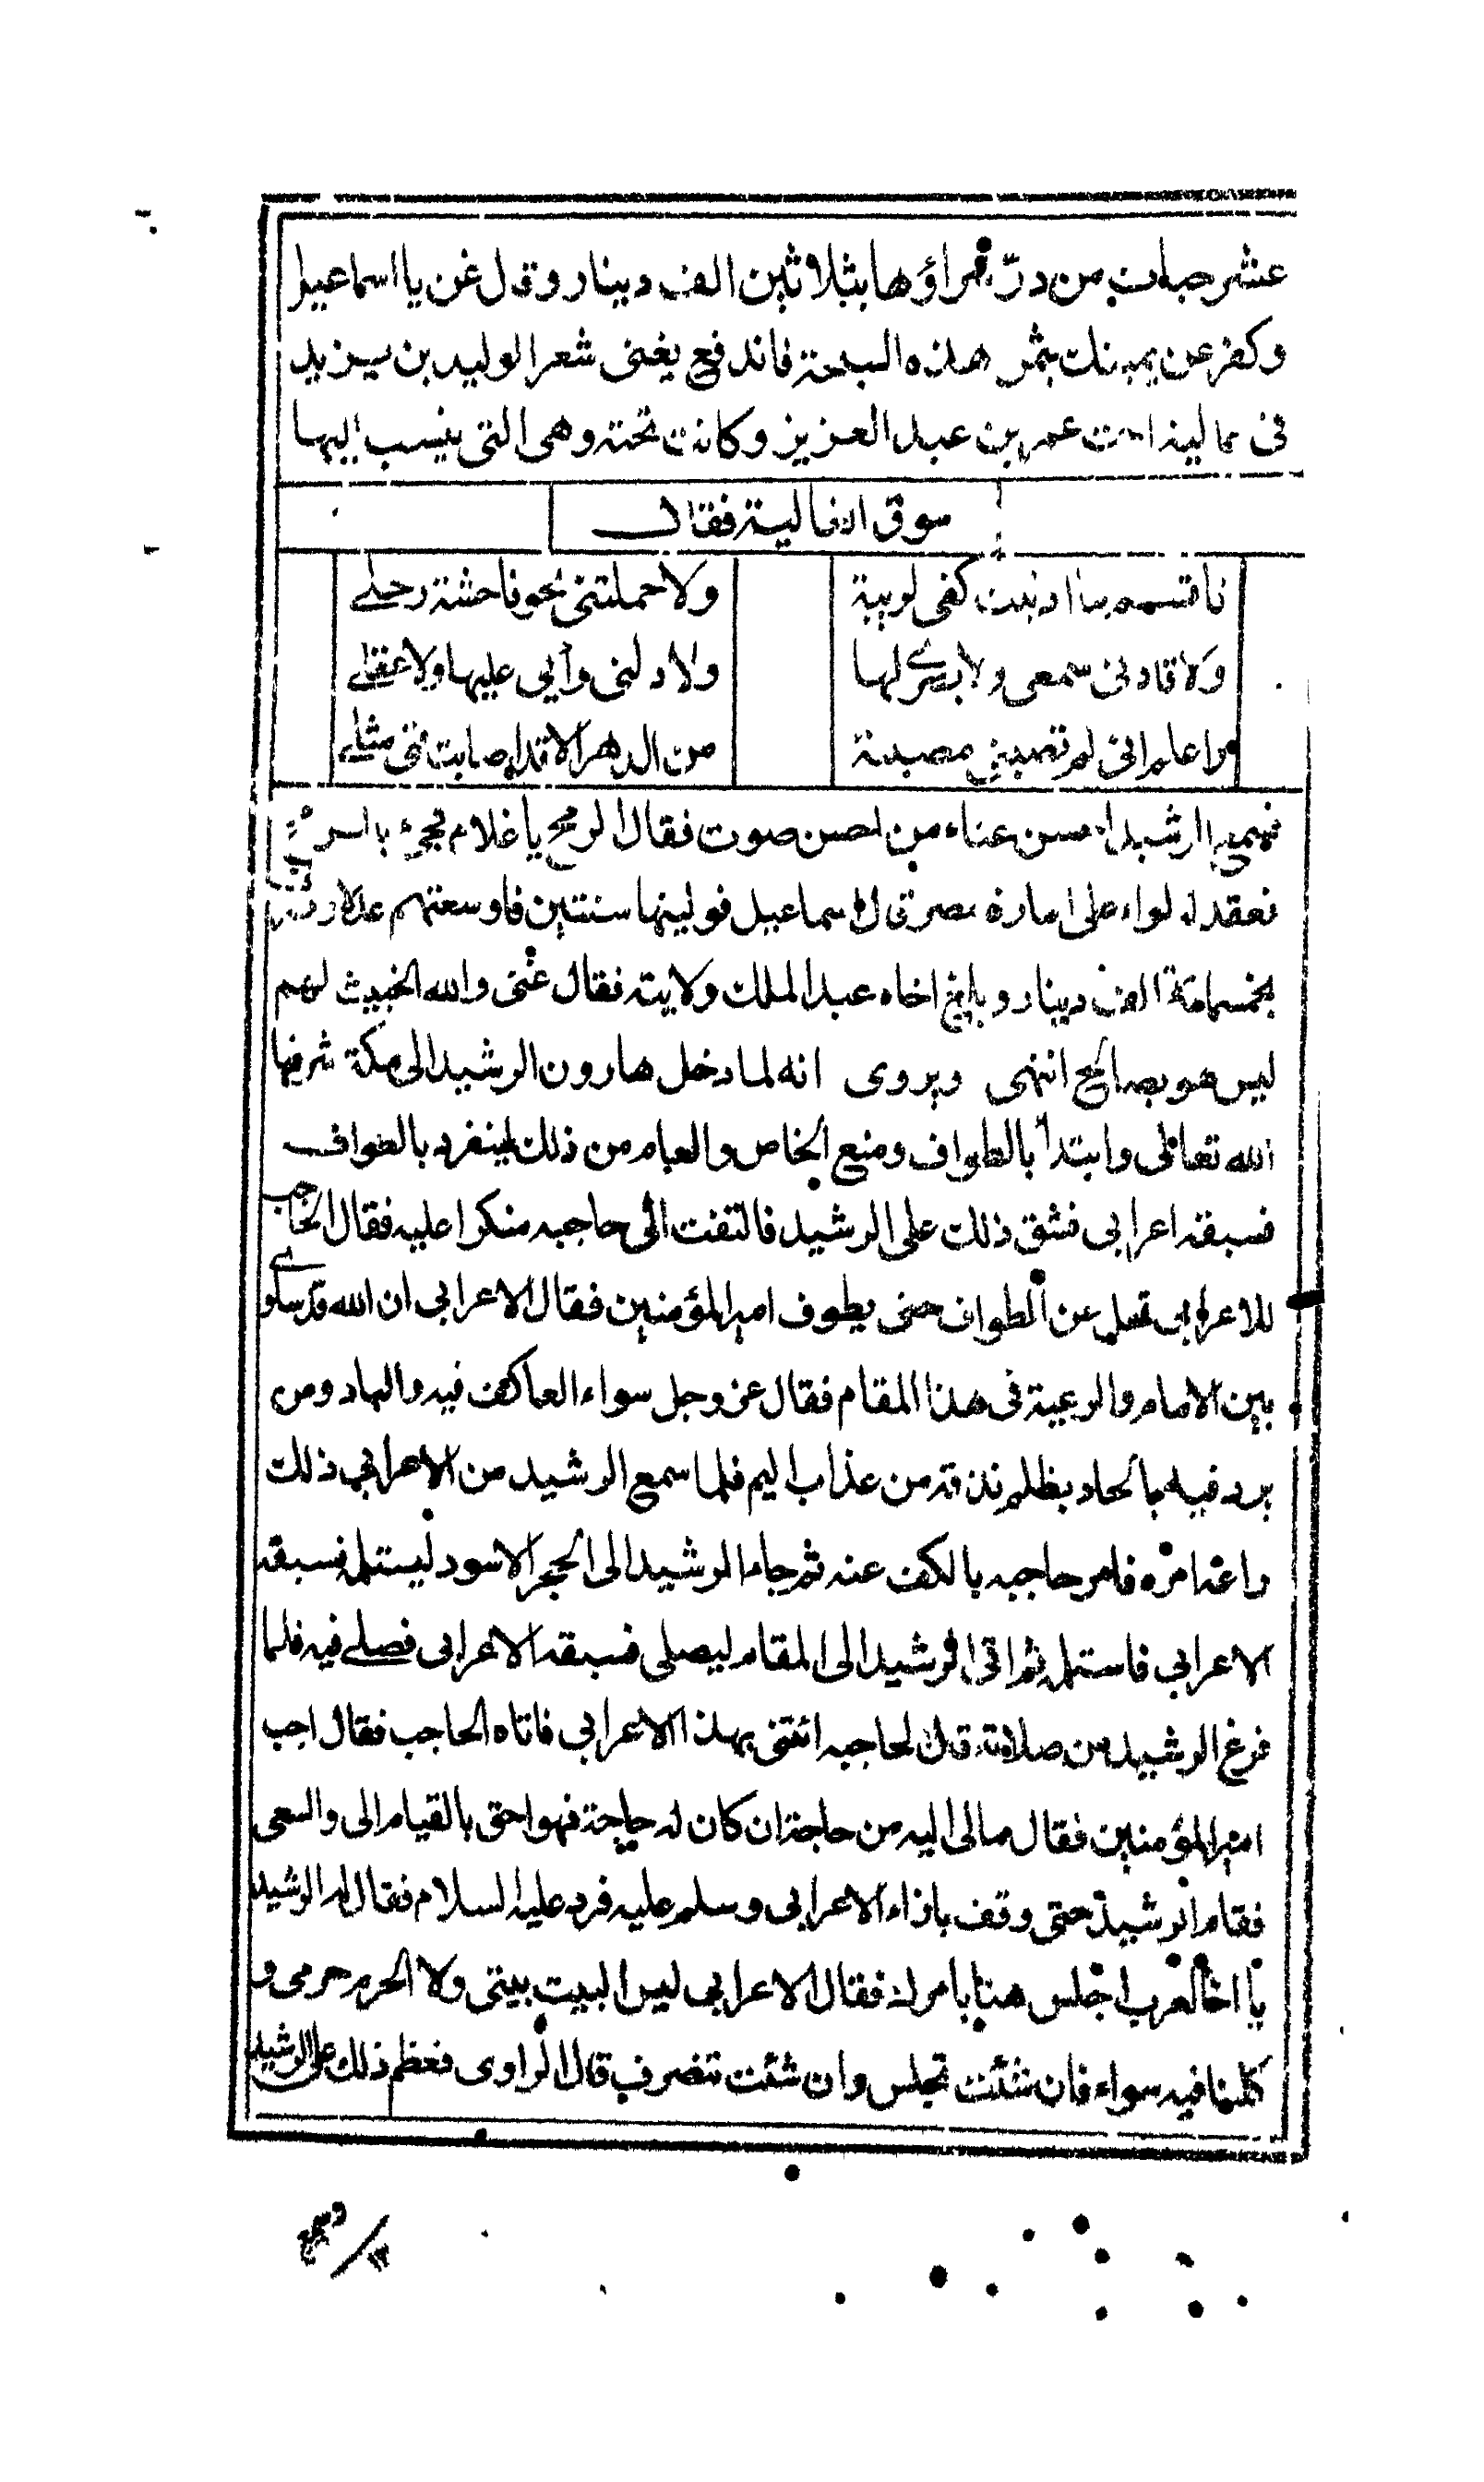 عشر حبات من درّ شراؤها بثلاثين الف دينار وقال غن يا اسماعيل
وكفر عن يمينك بثمن هذه السبحة فاندفع يغنى شعر الوليد بن يزيد
فى عالية اخت عمر بن عبد العزيز وكانت تحته وهى التى ينسب اليها
سوق الغالية فقال
فاقسم ما ادنيت كفى لريبة
ولا حملتنى نحو فاحشة رجلے
ولا قادنى سمعى ولا بصرے لها
ولا دلنى رأيى عليها ولا عقلے
واعلم انى لم تصبنى مصيبة
من الدهر الا قد اصابت فتى مثلے
فسمع الرشيد احسن غناء من احسن صوت فقال الرمح يا غلام فجئ بالرمح
فعقد له لواء على امارة مصر قال اسماعيل فوليتها سنتين فاوسعتهم عدلا
بخمسمائة الف دينار وبلغ اخاه عبد الملك ولايته فقال غنى والله الخبيث لهم
ليس هو بصالح انتهى ويروى انه لما دخل هارون الرشيد الى مكة شرفها
الله تعالى وابتدأ بالطواف ومنع الخاص والعام من ذلك لينفرد بالطواف
فسبقه اعرابى فشق ذلك على الرشيد فالتفت الى حاجبه منكرا عليه فقال الحاجب
للاعرابى تخل عن الطواف حتى يطوف امير المؤمنين فقال الاعرابى ان الله قد سا\وے
بين الامام والرعية فى هذا المقام فقال عز وجل سواء العاكف فيه والباد ومن
يرد فيه بالحاد بظلم نذقه من عذاب اليم فلما سمع الرشيد من الاعرابى ذلك
راعه امره فامر حاجبه بالكف عنه ثم جاء الرشيد الى الحجر الاسود ليستلمه فسبقه
الاعرابى فاستلمه ثم اتى الرشيد الى المقام ليصلى فسبقه الاعرابى فصلے فيه فلما
فرغ الرشيد من صلاته قال لحاجبه ائتنى بهذا الاعرابى فاتاه الحاجب فقال اجب
امير المؤمنين فقال مالى اليه من حاجة ان كان له حاجة فهو احق بالقيام الى والسعى
فقام الرشيد حتى وقف بازاء الاعرابى وسلم عليه فرد عليه السلام فقال له الرشيد
يا اخا العرب اجلس هنا بامرك فقال الاعرابى ليس البيت بيتى ولا الحرم حرمى و
كلنا فيه سواء فان شئت تجلس وان شئت تنصرف قال الراوى فعظم ذلك على الرشيد